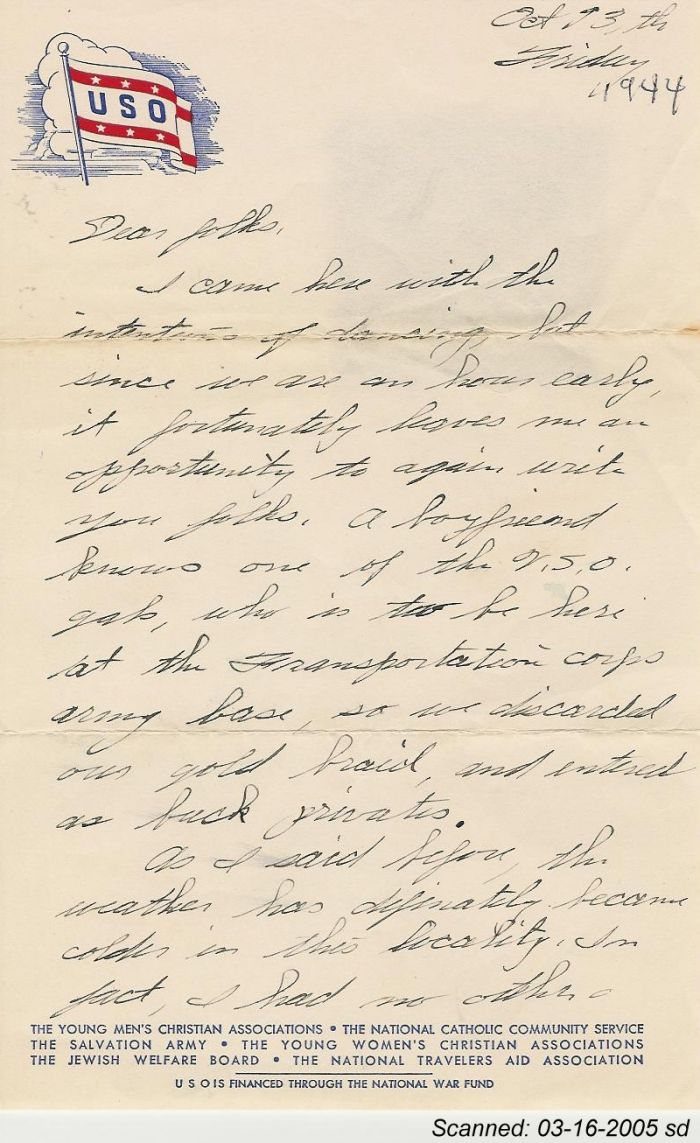 Oct 13, th
Friday
1944
USO
Dear folks,
I came here with the
intentions of dancing, but
since we are an hour early,
it fortunately leaves me an
opportunity to again write
you folks. A boyfriend
knows one of the U.S.O.
gals, who is to be here
at the Transportation corps
army base, so we discarded
our gold braid, and entered
as buck privates.
As I said before, the
weather has definately became
colder in this locality. In
fact, I had no other
THE YOUNG MEN'S CHRISTIAN ASSOCIATIONS • THE NATIONAL CATHOLIC COMMUNITY SERVICE
THE SALVATION ARMY • THE YOUNG WOMEN'S CHRISTIAN ASSOCIATIONS
THE JEWISH WELFARE BOARD • THE NATIONAL TRAVELERS AID ASSOCIATION
U S O IS FINANCED THROUGH THE NATIONAL WAR FUND
Scanned: 03-16-2005 sd